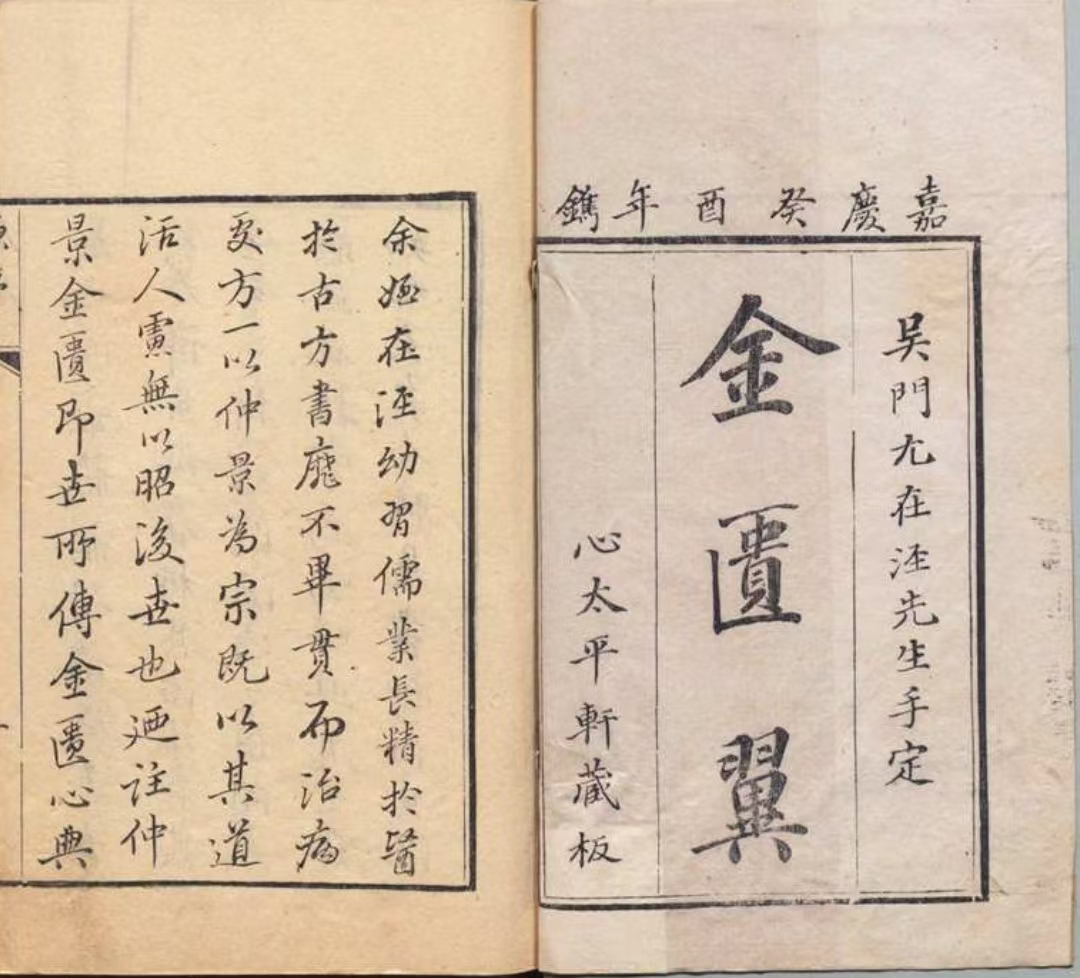 嘉慶癸酉年鐫
吳門尤在涇先生手定
金匱翼
心太平軒藏板
余姪在涇幼習儒業長精扵醫
扵古方書靡不畢貫而治病
處方一以仲景為宗既以其道
活人慮無以昭後世也廼註仲
景金匱即世所傳金匱心典